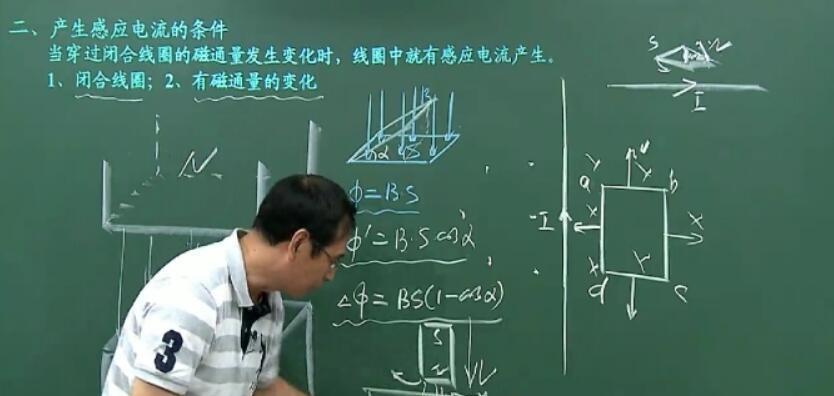 二、产生感应电流的条件
当穿过闭合线圈的磁通量发生变化时，线圈中就有感应电流产生。
1、闭合线圈；2、有磁通量的变化
N
B
α
S
ϕ=B·S
ϕ'=B·S cosα
△ϕ=BS(1-cosα)
S
N
S
N
I
v
a
b
I
x
x
d
c
3